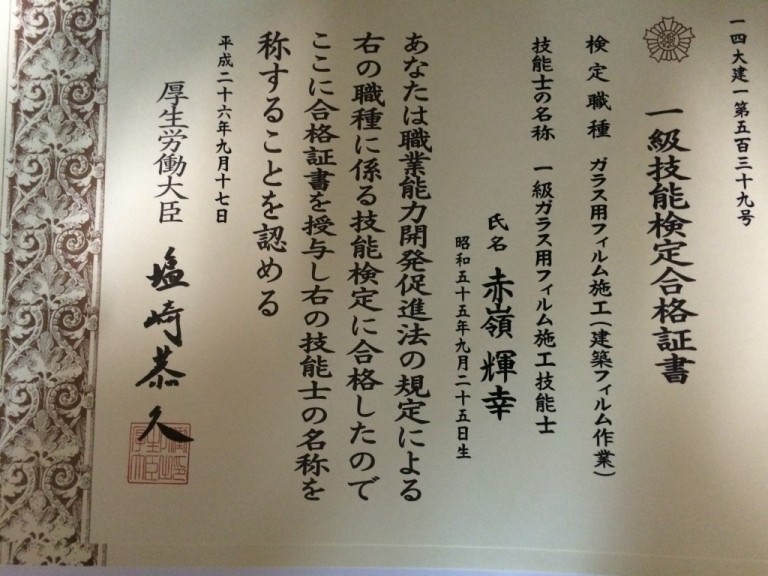 一四大建一第五百三十九号
一級技能検定合格証書
検定職種 ガラス用フィルム施工(建築フィルム作業)
技能士の名称 一級ガラス用フィルム施工技能士
氏名 赤嶺 輝幸
昭和五十五年九月二十五日生
あなたは職業能力開発促進法の規定による
右の職種に係る技能検定に合格したので
ここに合格証書を授与し右の技能士の名称を
称することを認める
平成二十六年九月十七日
厚生労働大臣 塩崎恭久